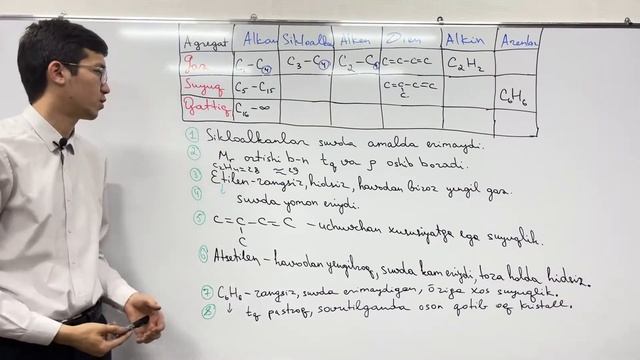 Agregat Alkan Sikloalkan Alken Dien Alkin Arenlar
gaz C1-C4 C3-C4 C2-C4 C=C-C=C C2H2
Suyuq C5-C15 C=C-C=C C C6H6
Qattiq C16-∞
1 Sikloalkanlar suvda amalda erimaydi.
2 Mr ortishi b-n tq va ρ oshib boradi.
C2H4=28 ≈29
3 Etilen-rangsiz, hidsiz, havodan biroz yengil gaz.
4 ↓ suvda yomon eriydi.
5 C=C-C=C - uchuvchan xususiyatga ega suyuqlik.
C
6 Atsetilen-havodan yengilroq, suvda kam eriydi, toza holda hidsiz.
7 C6H6-rangsiz, suvda erimaydigan, o'ziga xos suyuqlik.
8 ↓ tq pastroq, sovutilganda oson qotib oq kristall.